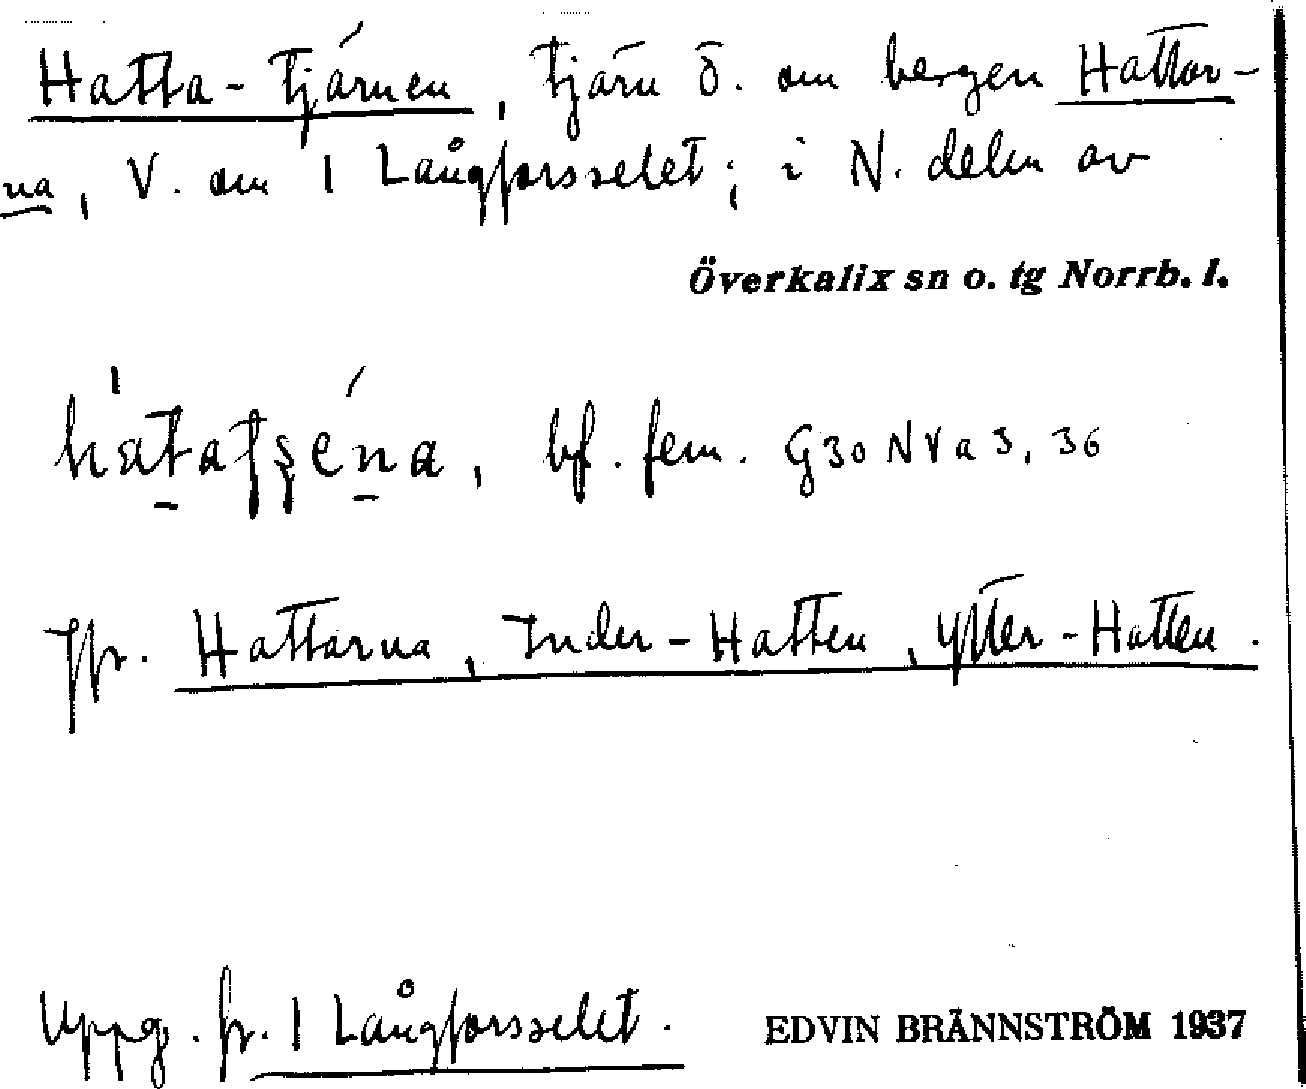 Hatta-tjärnen, tjärn ö. om bergen Hattar-
na, V. om 1 Långforsselet; i N. delen av
Överkalix sn o. tg Norrb. l.
hàtatşéna, bf. fem. G30NVa3, 36
Jfr. Hattarna, Inder-Hatten, Ytter-Hatten.
Uppg. fr. 1 Långforsselet.
EDVIN BRÄNNSTRÖM 1937